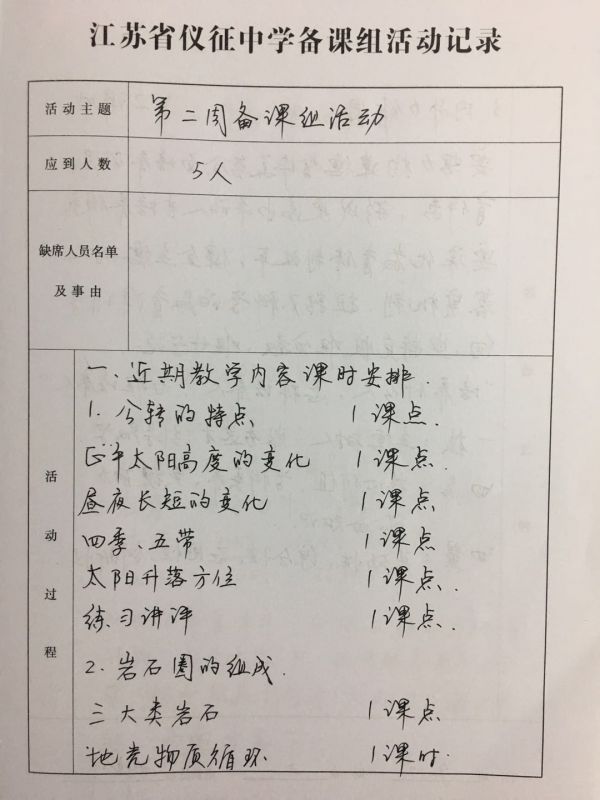 江苏省仪征中学备课组活动记录
活动主题
第二周备课组活动
应到人数
5人
缺席人员名单
及事由
活动过程
一.近期教学内容课时安排.
1.公转的特点 1课点.
正午太阳高度的变化 1课点.
昼夜长短的变化 1课点
四季、五带 1课点
太阳升落方位 1课点.
练习讲评 1课点.
2.岩石圈的组成.
三大类岩石 1课点
地壳物质循环 1课时.